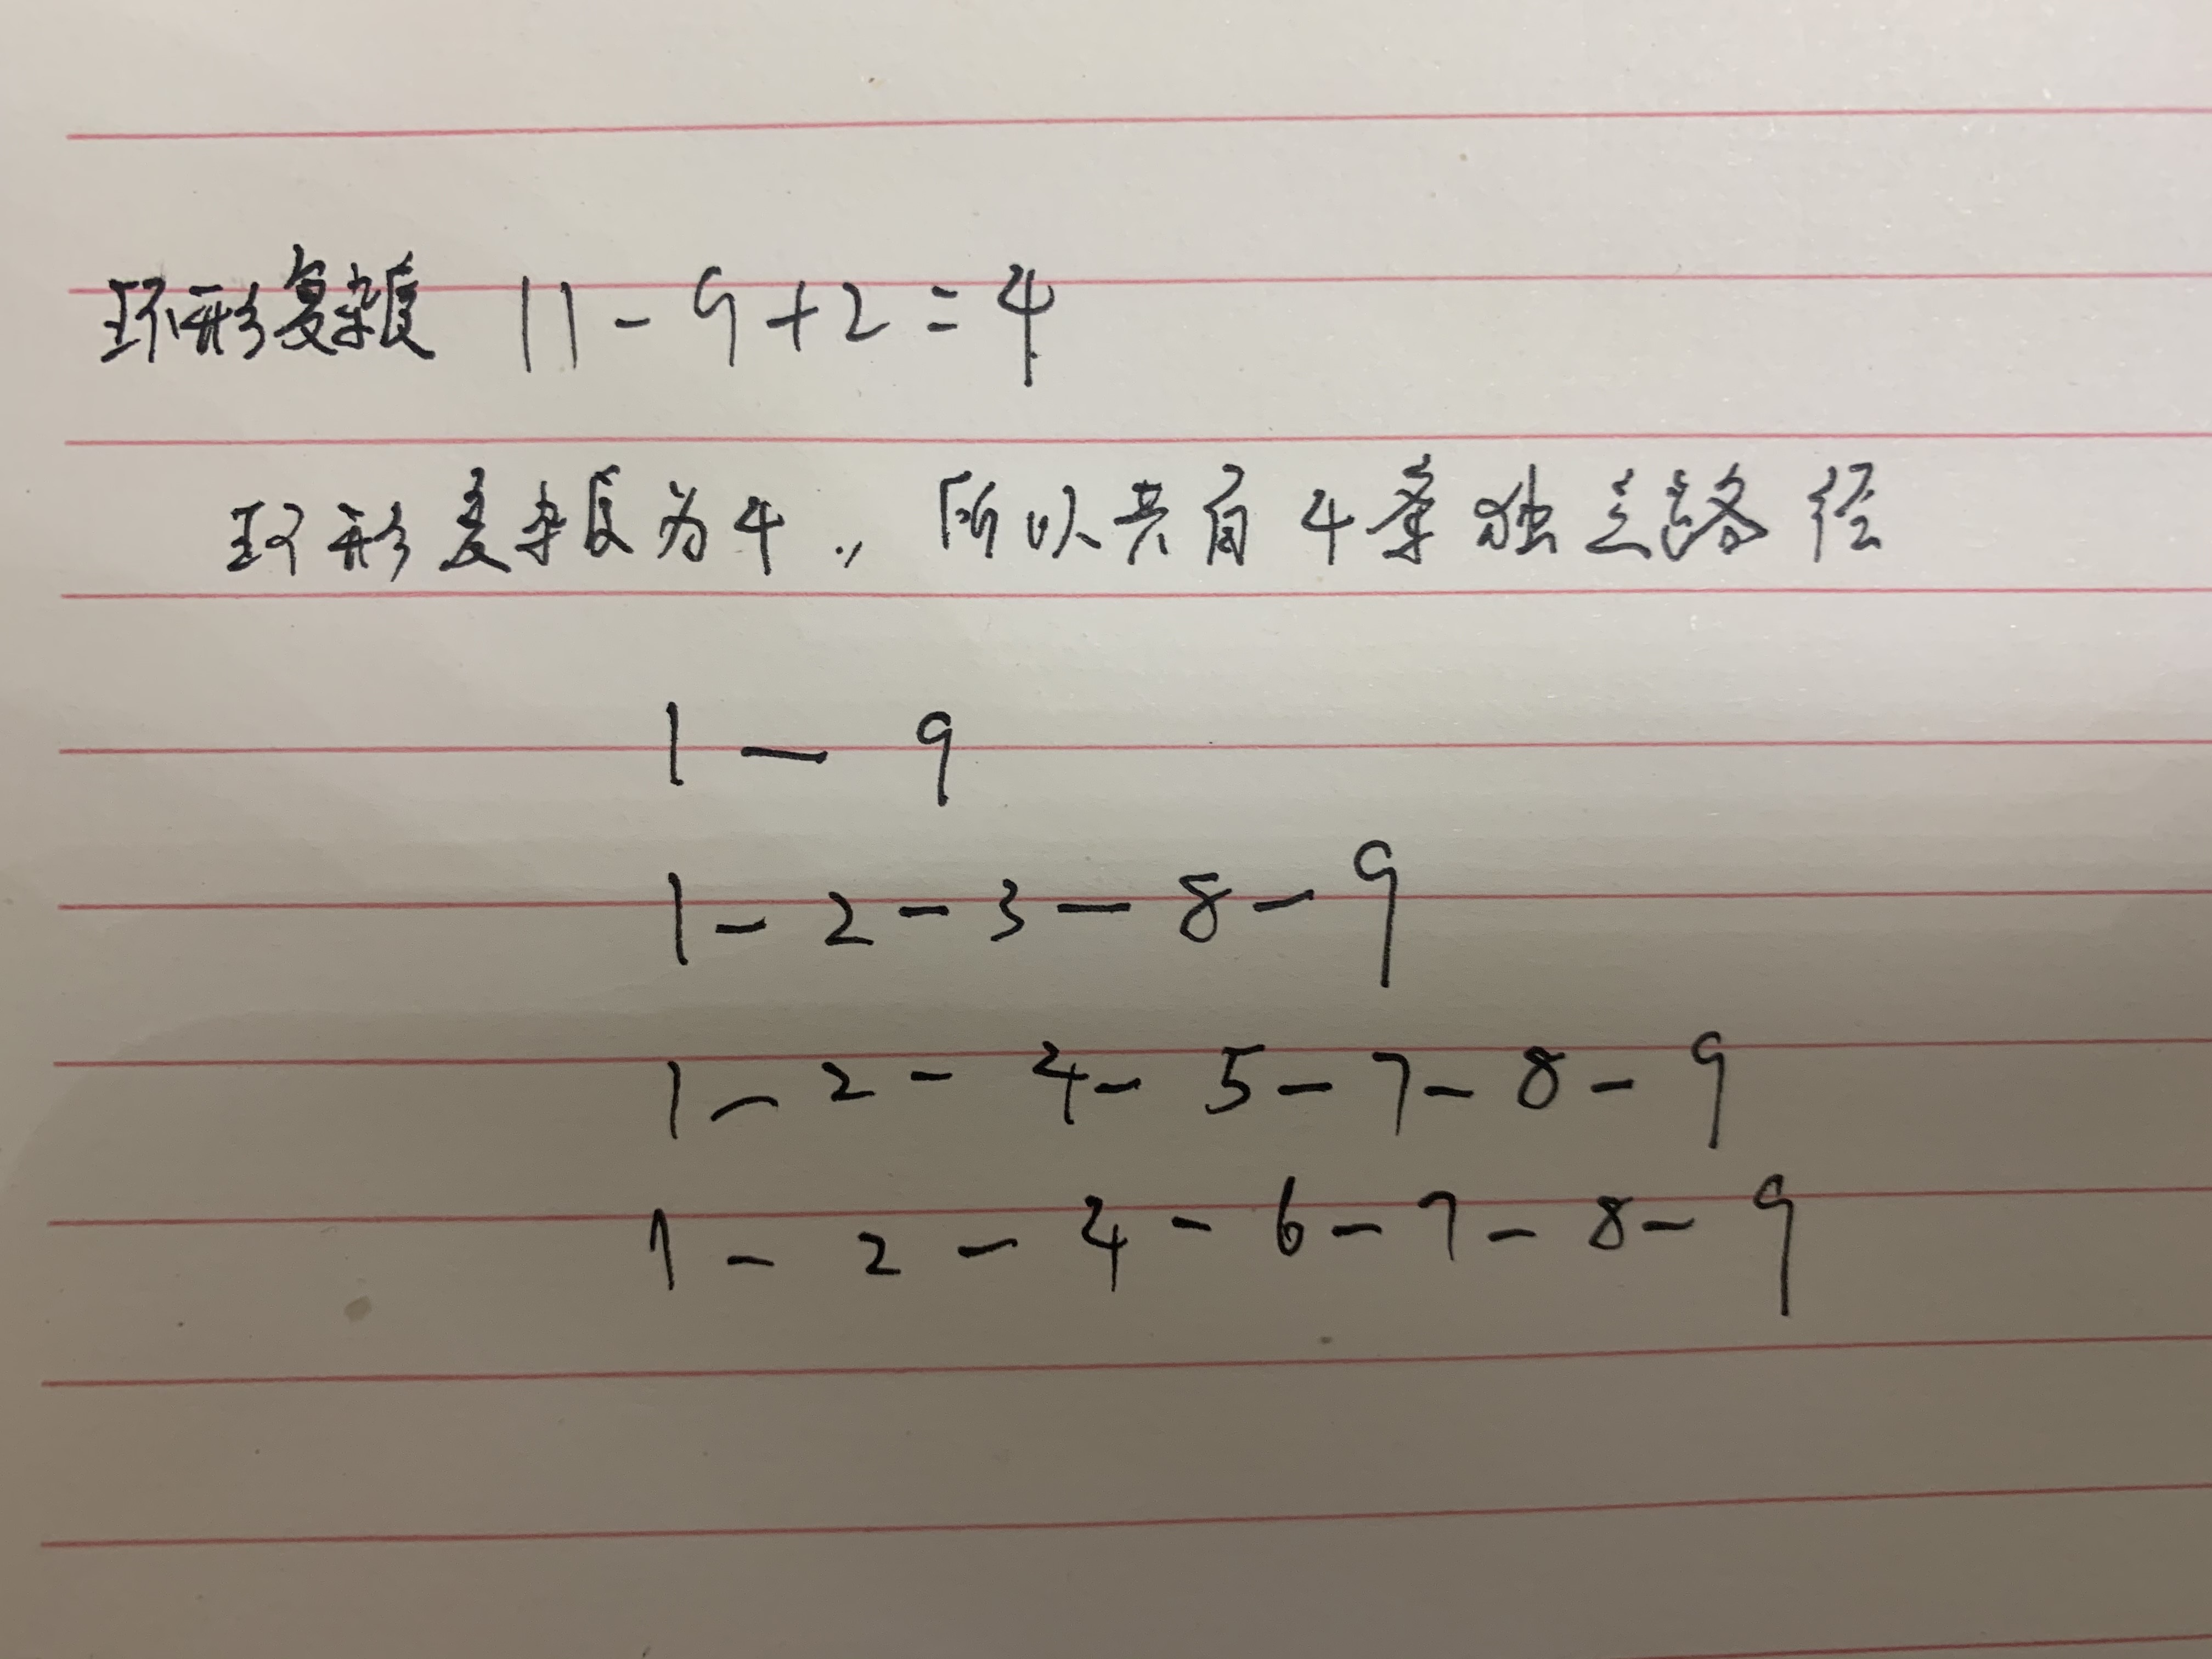 环形复杂度 11-9+2=4
环形复杂度为4.,所以共有4条独立路径
1-9
1-2-3-8-9
1-2-4-5-7-8-9
1-2-4-6-7-8-9